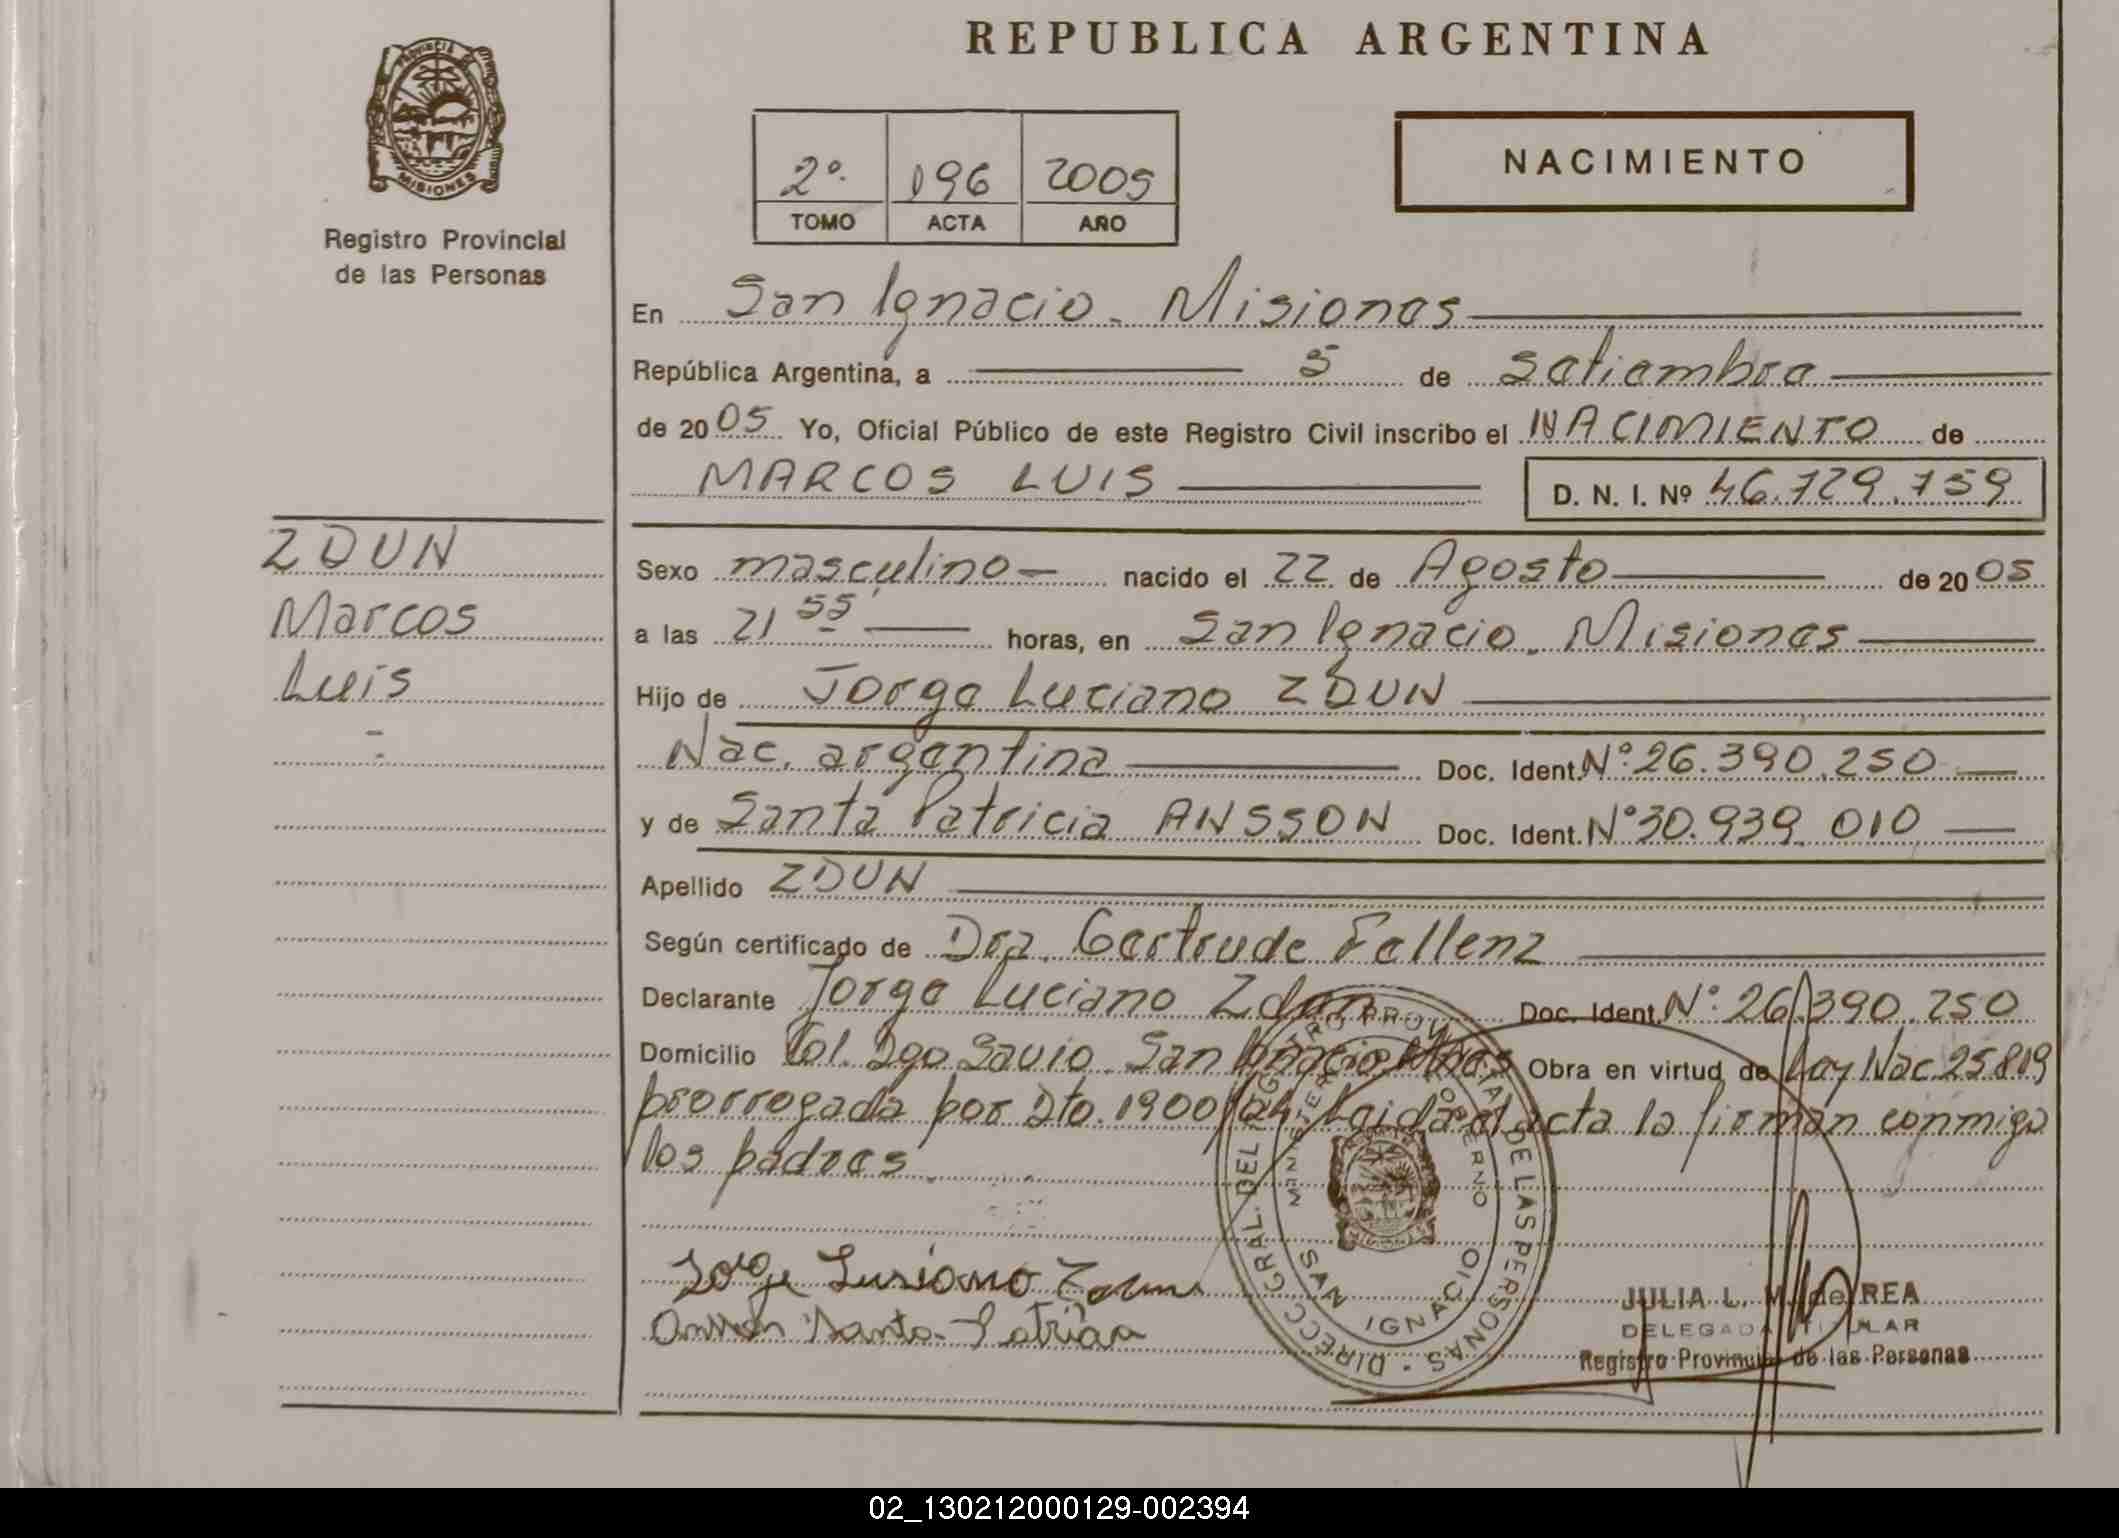 REPUBLICA ARGENTINA
PROVINCIA
MISIONES
Registro Provincial
de las Personas
2º 196 2005
TOMO ACTA AÑO
NACIMIENTO
En San Ignacio - Misiones
República Argentina, a 5 de Setiembre
de 2005 Yo, Oficial Público de este Registro Civil inscribo el NACIMIENTO de
MARCOS LUIS D. N. I. Nº 46.729.759
ZDUN
Marcos
Luis
Sexo masculino nacido el 22 de Agosto de 2005
a las 21 55 horas, en San Ignacio - Misiones
Hijo de Jorge Luciano ZDUN
Nac. argentina Doc. Ident. Nº 26.390.250
y de Santa Patricia ANSSON Doc. Ident. Nº 30.939.010
Apellido ZDUN
Según certificado de Dra. Gertrude Fellenz
Declarante Jorge Luciano Zdun Doc. Ident. Nº: 26.390.250
Domicilio Col. Dgo Savio. San Ignacio Mnes Obra en virtud de Ley Nac 25819
prorrogada por Dto. 1900/04. Leida el acta la firman conmigo
los padres.
DIRECC. GRAL. DEL REGISTRO PROVINCIAL DE LAS PERSONAS
MINISTERIO DE GOBIERNO
SAN IGNACIO
Jorge Lusiano Zdun
Ansson Santa Patricia
JULIA L. M. de REA
DELEGADA TITULAR
Registro Provincial de las Personas
02_130212000129-002394